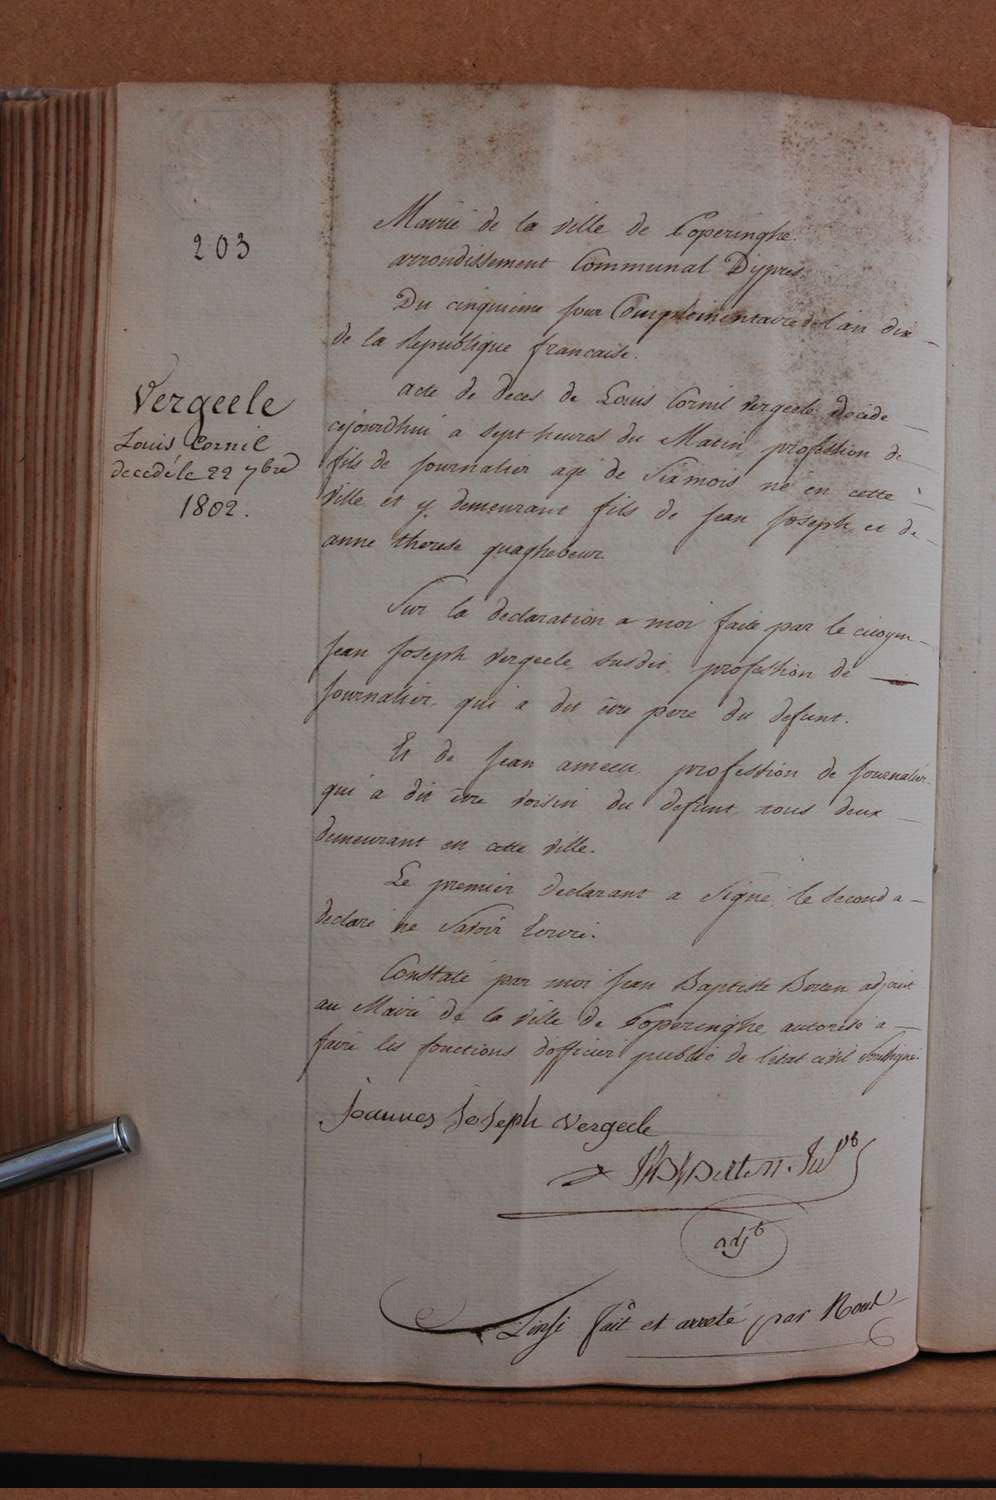 203
Vergeele
Louis Cornil
decedé le 22 7bre
1802.
Mairie de la ville de Poperinghe.
arrondissement Communal Dypres.
Du cinquieme jour Complementaire de l'an dix
de la Republique francaise.
acte de deces de Louis Cornil Vergeele decede
cejourdhui a sept heures du Matin, profession de
fils de journalier agé de Six mois né en cette
Ville et y demeurant fils de jean joseph et de
anne therese quaghebeur
Sur la declaration a moi faite par le citoyen
jean joseph Vergeele susdit, profession de
journalier, qui a dit être pere du defunt.
Et de jean ameeu profession de journalier
qui a dit être voisin du defunt, tous deux
demeurant en cette ville.
Le premier declarant a Signé, le second a
declaré ne Savoir Ecrire.
Constaté par moi jean Baptiste Berten adjoint
au Mairie de la ville de Poperinghe autorisé a
faire les fonctions dofficier public de l'etat civil soussigné.
Joannes Joseph Vergeele
Berten
adjt
Fait et arreté par Nous